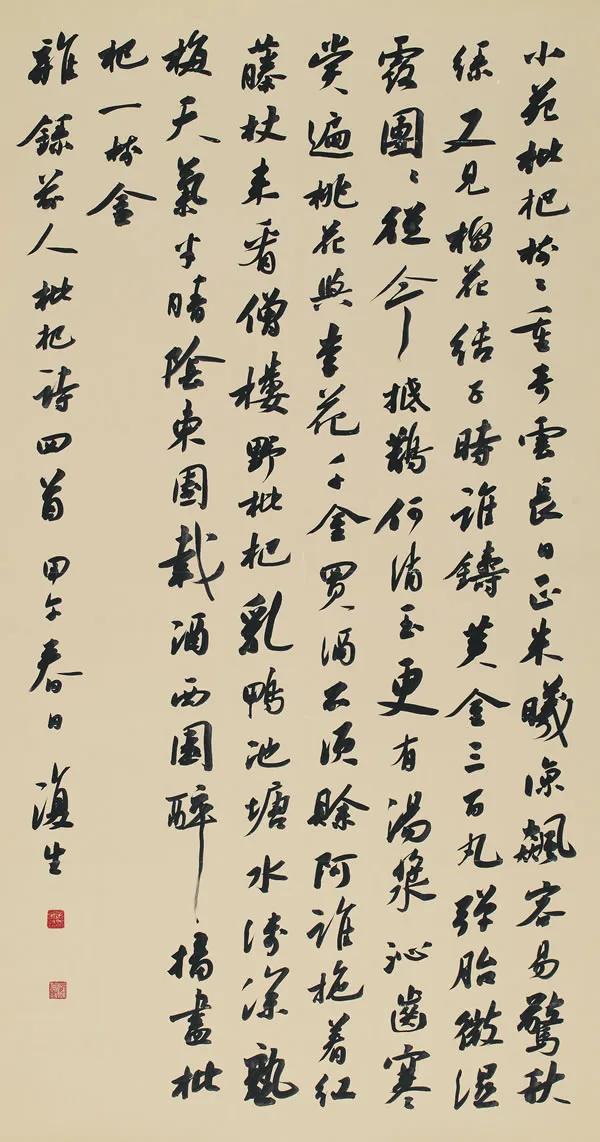 小苑枇杷樹〻垂奇雲長日正朱曦凉飆容易驚秋
綠又見榴花结子時誰鑄黄金三百丸彈胎微湿
露團〻從今抵鵲何消玉更有湯漿沁齒寒〻
赏遍桃花與李花千金買酒不須賒阿誰拖着红
藤杖来看僧樓野枇杷乳鴨池塘水淺深熟
梅天氣半晴陰東園載酒西園醉摘盡枇
杷一樹金
雜錄前人枇杷詩四首 甲午春日 生